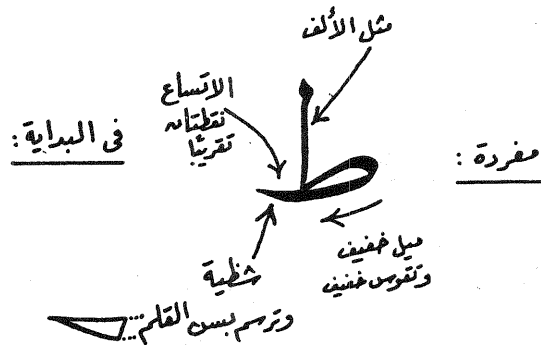 مثل الألف
الاتساع
نقطتان
تقريبًا
مفردة :
فى البداية :
ط
ميل خفيف
وتقوس خفيف
شظية
وترسم بسن القلم ...